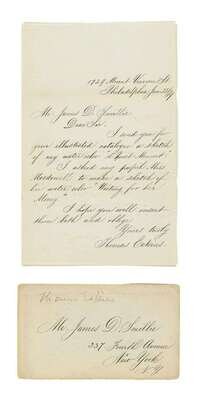 1729 Mount Vernon St
Philadelphia
Mr. James D. Smillie
Dear Sir.
I send you for
your illustrated catalogue a sketch
of my water color
I asked my pupil Miss
Macdowell, to make a sketch of
her water color "Waiting for her
I hope you will insert
them both and oblige
Yours truly
Thomas Eakins
Thomas Eakins
Mr. James D. Smillie
337 Fourth Avenue
New York
N.Y.